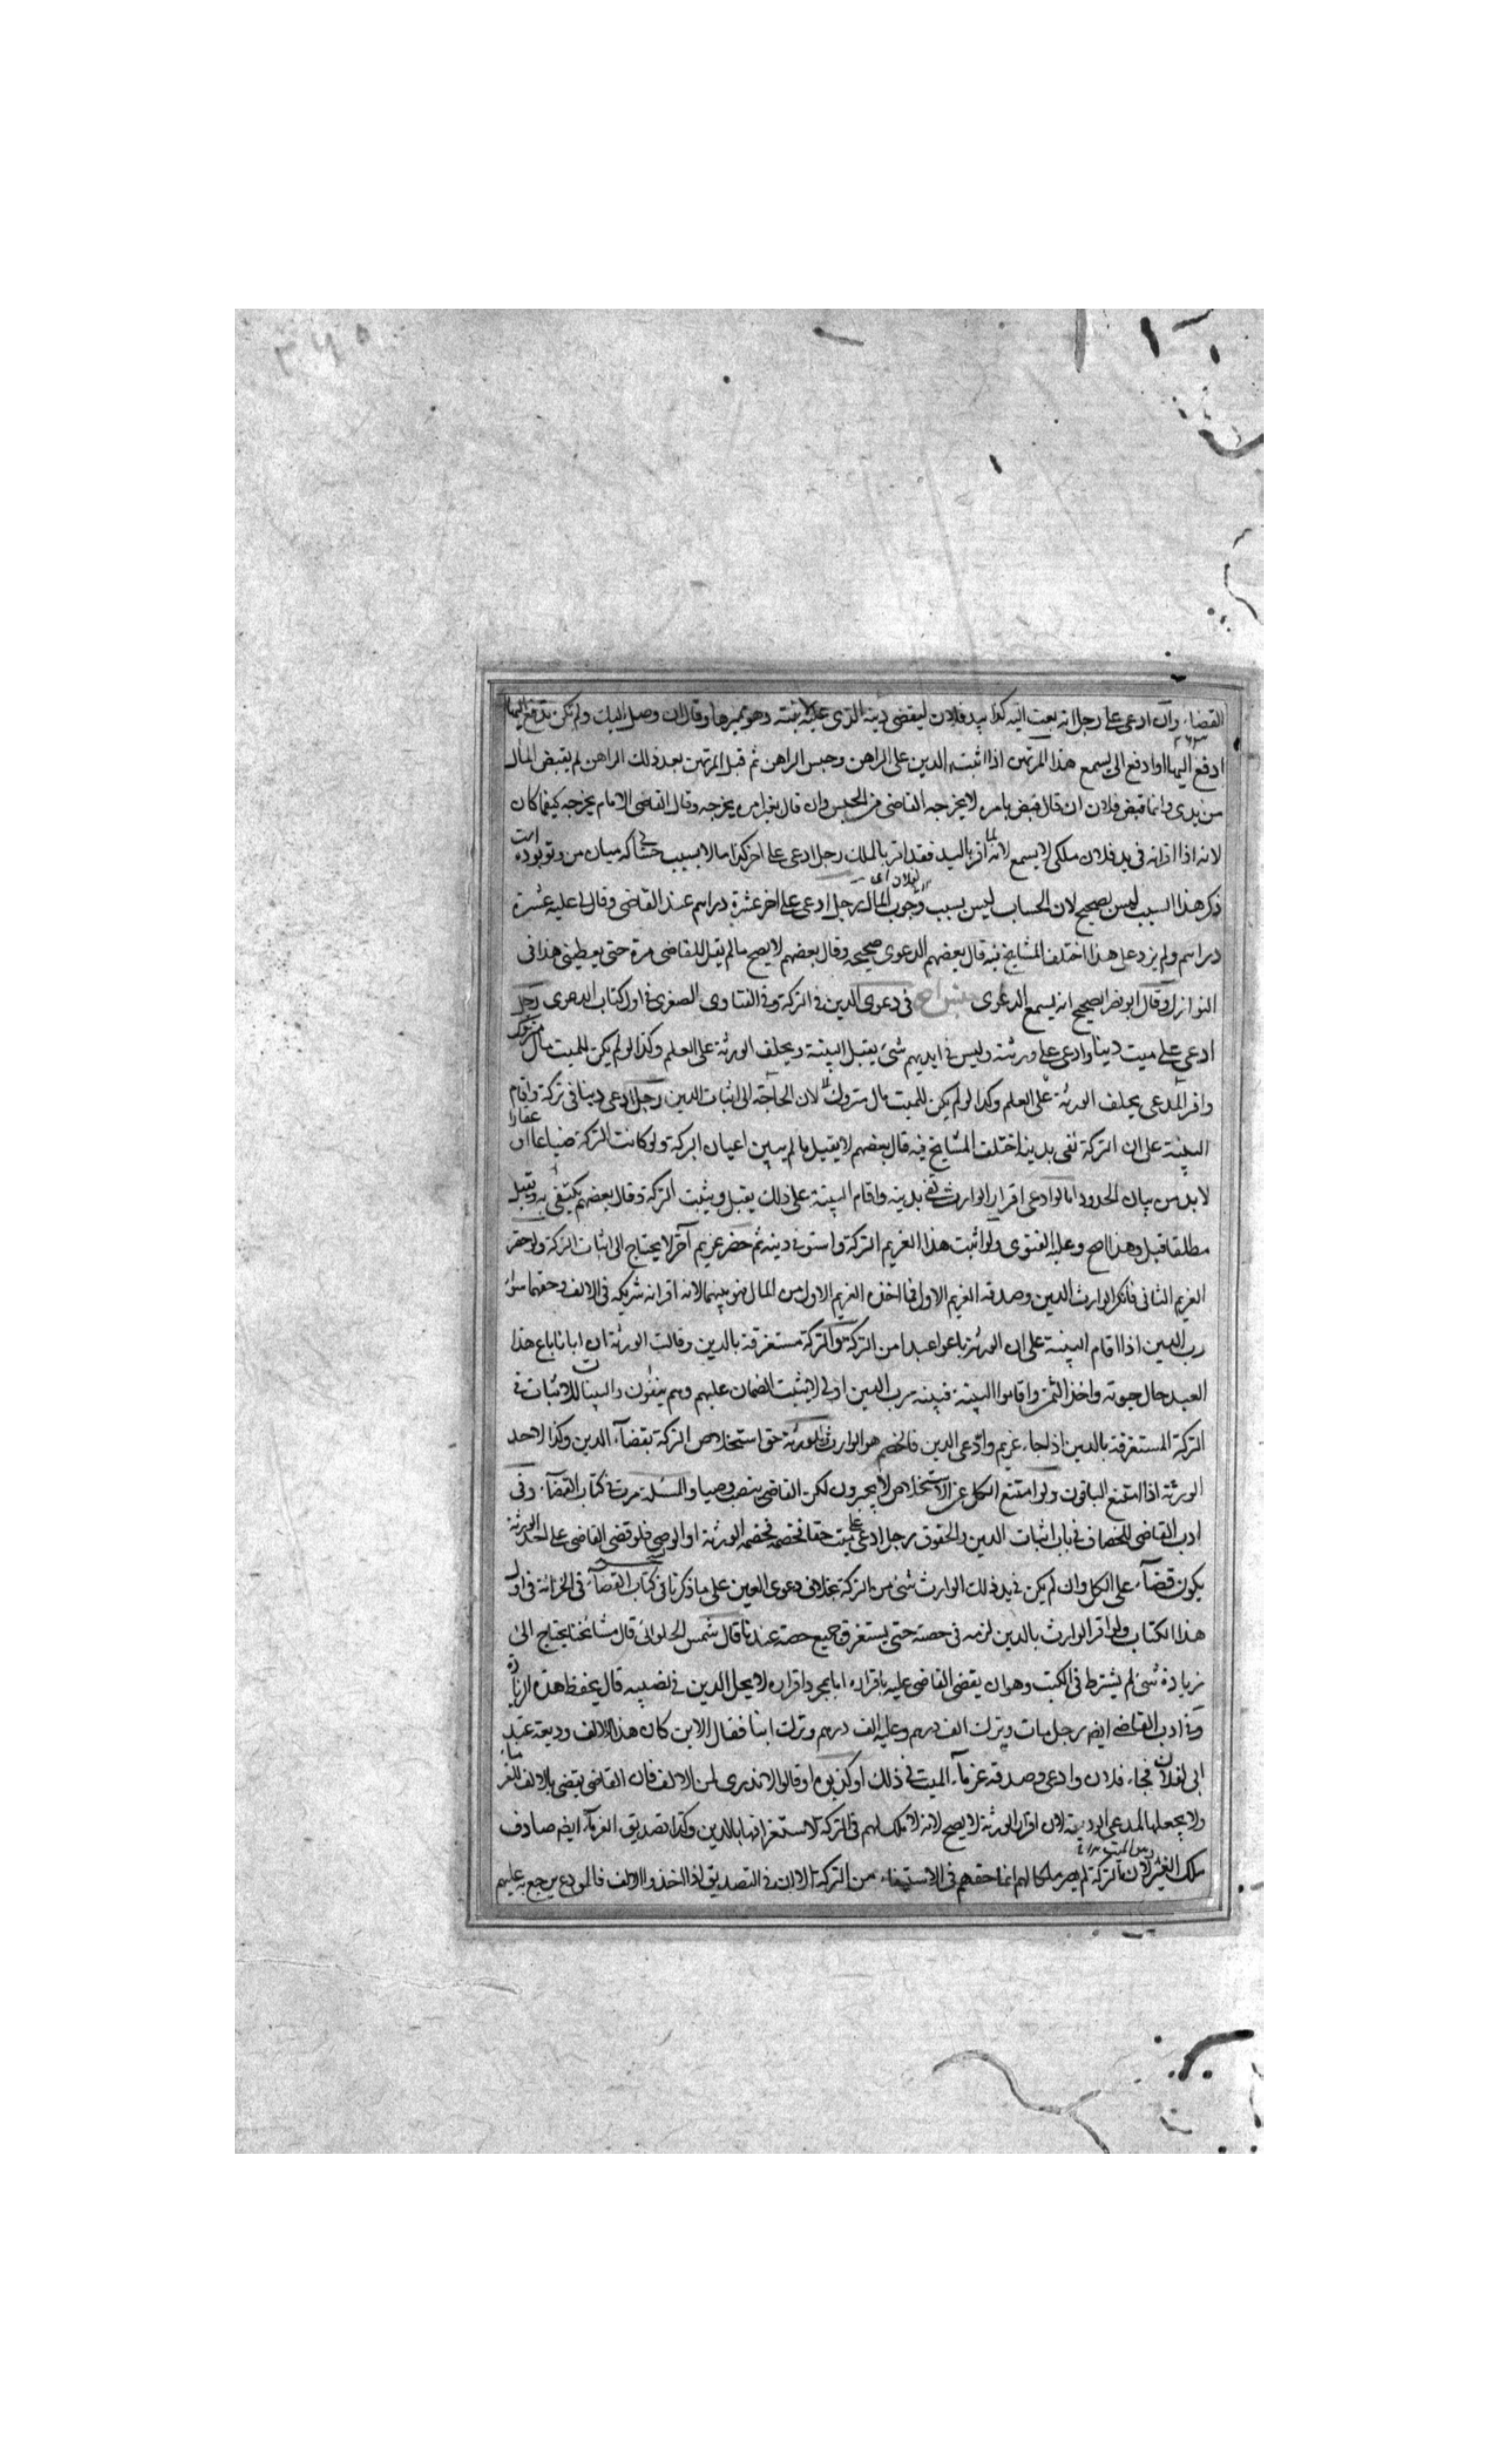 القضاء وان ادعى على رجل انه بعث اليه كذا بيد فلان ليقضى دينه الذى عليه وقال ان وصل اليك ولم يكن يدفع اليها
ادفع اليها او ادفع الى يسمع هذا المرتهن اذا اثبت الدين على الراهن وحبس الراهن ثم قبل المرتهن بعد ذلك الراهن لم يقبض المال
من يدى وانما قبض فلان ان قال قبض بامره لا يخرجه القاضى من الحبس وان قال بغير امره يخرجه وقال القاضى الامام يخرجه كيفما كان
لانه اذا اقر انه فى يد فلان ملكى لا يسمع لانه لما اقر باليد فقد اقر بالملك رجل ادعى على اخر كذا مالا بسبب حسابى كه ميان من وتو بوده است
ذكر هذا السبب ليس بصحيح لان الحساب ليس بسبب لوجوب المال رجل ادعى على اخر عشرة دراهم عند القاضى وقال لى عليه عشرة
دراهم ولم يزد على هذا اختلف المشايخ فيه قال بعضهم الدعوى صحيحة وقال بعضهم لا يصح مالم يقل للقاضى مره حتى يعطينى هذا فى
النوازل وقال ابو نصر الصحيح انه يسمع الدعوى فى دعوى الدين فى التركة وفى الفتاوى الصغرى فى اول كتاب الدعوى رجل
ادعى على ميت دينا وادعى على ورثته وليس فى ايديهم شئ يقبل البينة ويحلف الورثة على العلم وكذا لو لم يكن للميت مال متروك
واقر المدعى يحلف الورثة على العلم وكذا لو لم يكن للميت مال متروك لان الحاجة الى اثبات الدين رجل ادعى دينا فى تركة واقام
البينة على ان التركة تفى بدينه اختلف المشايخ فيه قال بعضهم لا يقبل مالم يبين اعيان التركة ولو كانت التركة ضياعا او عقارا
لا بد من بيان الحدود اما لو ادعى اقرار الوارث تفى بدينه واقام البينة على ذلك يقبل ويثبت التركة وقال بعضهم يكتفى به ويقبل
مطلقا قبل وهذا اصح وعليه الفتوى ولو اثبت هذا الغريم التركة واستوفى دينه ثم حضر غريم آخر لا يحتاج الى اثبات التركة ولو حضر
الغريم الثانى فانكر الوارث الدين وصدقه الغريم الاول فما اخذه الغريم الاول من المال فهو بينهما لانه اقر انه شريكه فى الالف وحقهما سواء
رب الدين اذا اقام البينة على ان الورثة باعوا عبدا من التركة والتركة مستغرقة بالدين وقالت الورثة ان ابانا باع هذا
العبد حال حيوته واخذ الثمن واقاموا البينة فبينة رب الدين اولى لا يثبت الضمان عليهم وهم ينفون والبينات للاثبات فى
التركة المستغرقة بالدين اذا جاء غريم وادعى الدين فالخصم هو الوارث للورثة حق استخلاص التركة بقضاء الدين وكذا لاحد
الورثة اذا امتنع الباقون ولو امتنع الكل عن الاستخلاص لا يجبرون لكن القاضى ينصب وصيا والمسئلة مرت فى كتاب القضاء وفى
ادب القاضى للخصاف فى باب اثبات الدين والحقوق رجل ادعى على ميت حقا فخصمه الورثة او الوصى فلو قضى القاضى على احد الورثة
يكون قضاء على الكل وان لم يكن فى يد ذلك الوارث شئ من التركة بخلاف دعوى العين على ما ذكرنا فى كتاب القضاء فى الخزانة فى اول
هذا الكتاب ولو اقر الوارث بالدين لزمه فى حصته حتى يستغرق جميع حصته عندنا قال شمس الحلوانى قال مشايخنا يحتاج الى
زيادة شئ لم يشترط فى الكتب وهو ان يقضى القاضى عليه باقراره اما بمجرد اقراره لا يحل الدين فى نصيبه قال يحفظ هذه الزيادة
وفى ادب القاضى ايضا رجل مات وترك الف درهم وعليه الف درهم وترك ابنا فقال الابن كان هذا الالف وديعة عند
ابى لفلان فجاء فلان وادعى وصدقه غرماء الميت فى ذلك او كذبوه او قالوا لا ندرى لمن الالف فان القاضى يقضى بالالف للغرماء
ولا يجعلها لمدعى الوديعة لان اقرار الورثة لا يصح لانه لا ملك لهم فى التركة لاستغراقها بالدين وكذا تصديق الغرماء ايضا صادف
ملك الغير لان التركة لم يصر ملكا لهم انما حقهم فى الاستيفاء من التركة الا ان فى التصديق اذا اخذوا الالف فالمودع يرجع به عليهم